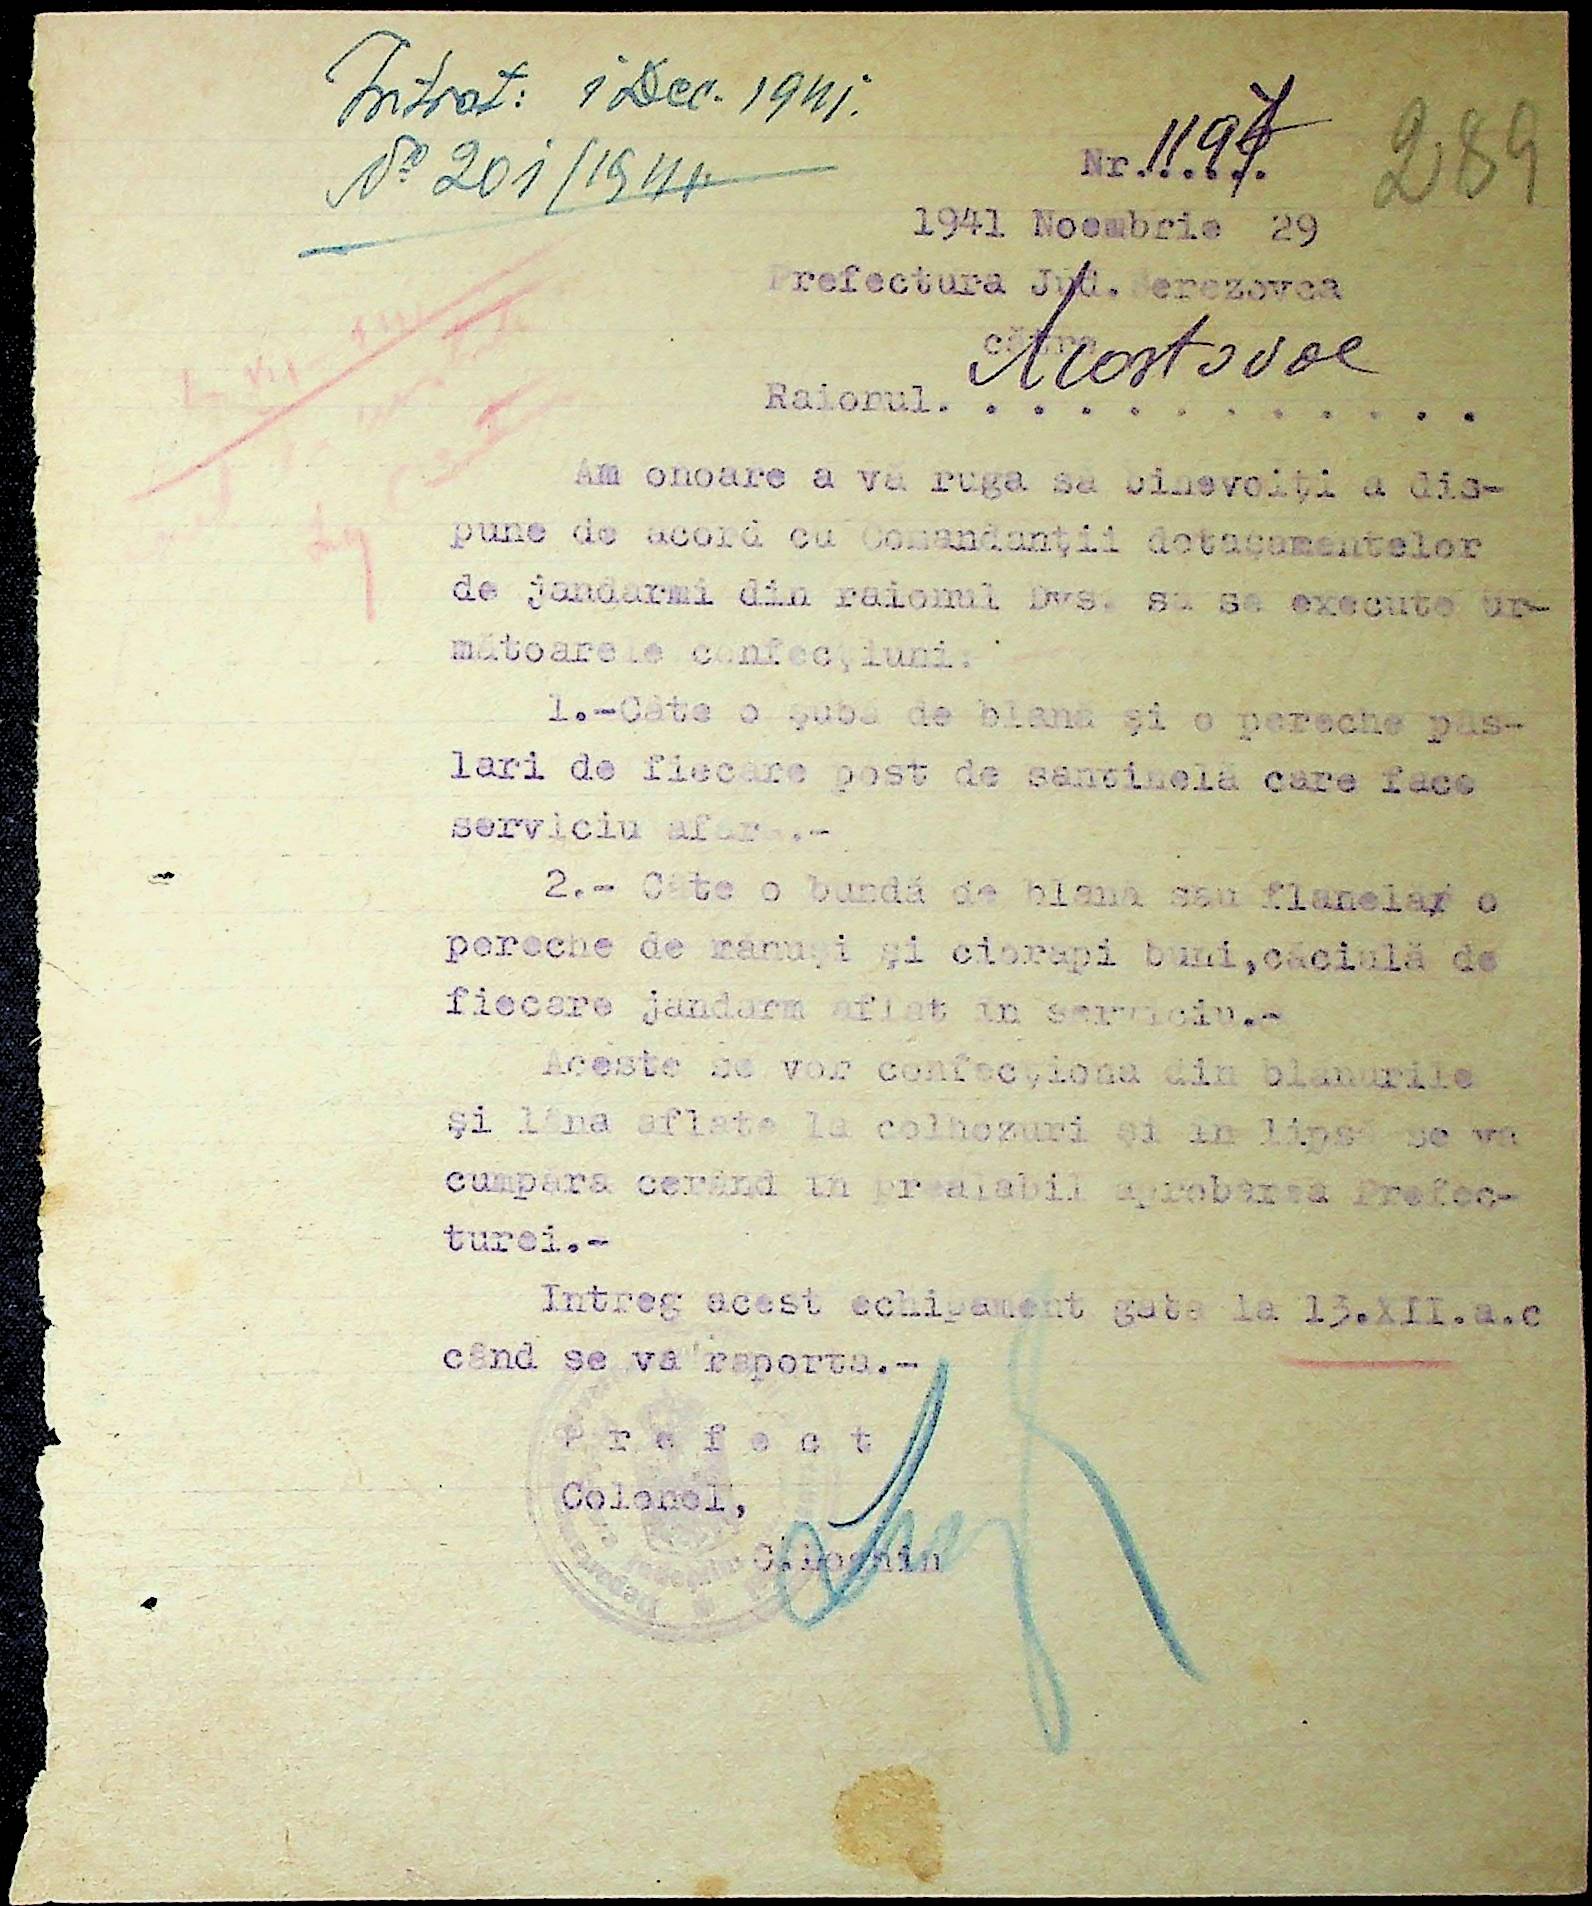 Intrat: 1 Dec. 1941.
No 201/1941
289
Nr.1197
1941 Noembrie 29
Prefectura Jud. Berezovca
către
Raionul. Mostovoe
Am onoare a vă ruga să binevoiți a dis-
pune de acord cu Comandanții detașamentelor
de jandarmi din raionul Dvs. să se execute ur-
mătoarele confecțiuni:
1.-Câte o șubă de blană și o pereche pâs-
lari de fiecare post de santinelă care face
serviciu afară.-
2.- Câte o bundă de blană sau flanelă o
pereche de mănuși și ciorapi buni,căciulă de
fiecare jandarm aflat in serviciu.-
Aceste se vor confecționa din blanurile
și lâna aflate la colhozuri și in lipsă se va
cumpăra cerând in prealabil aprobarea Prefec-
turei.-
Intreg acest echipament gata la 15.XII.a.c
când se va raporta.-
P r e f e c t
Colonel,